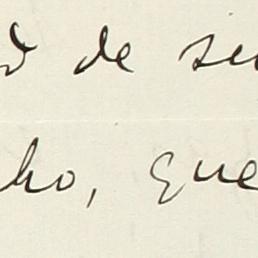 d de su
ho, que